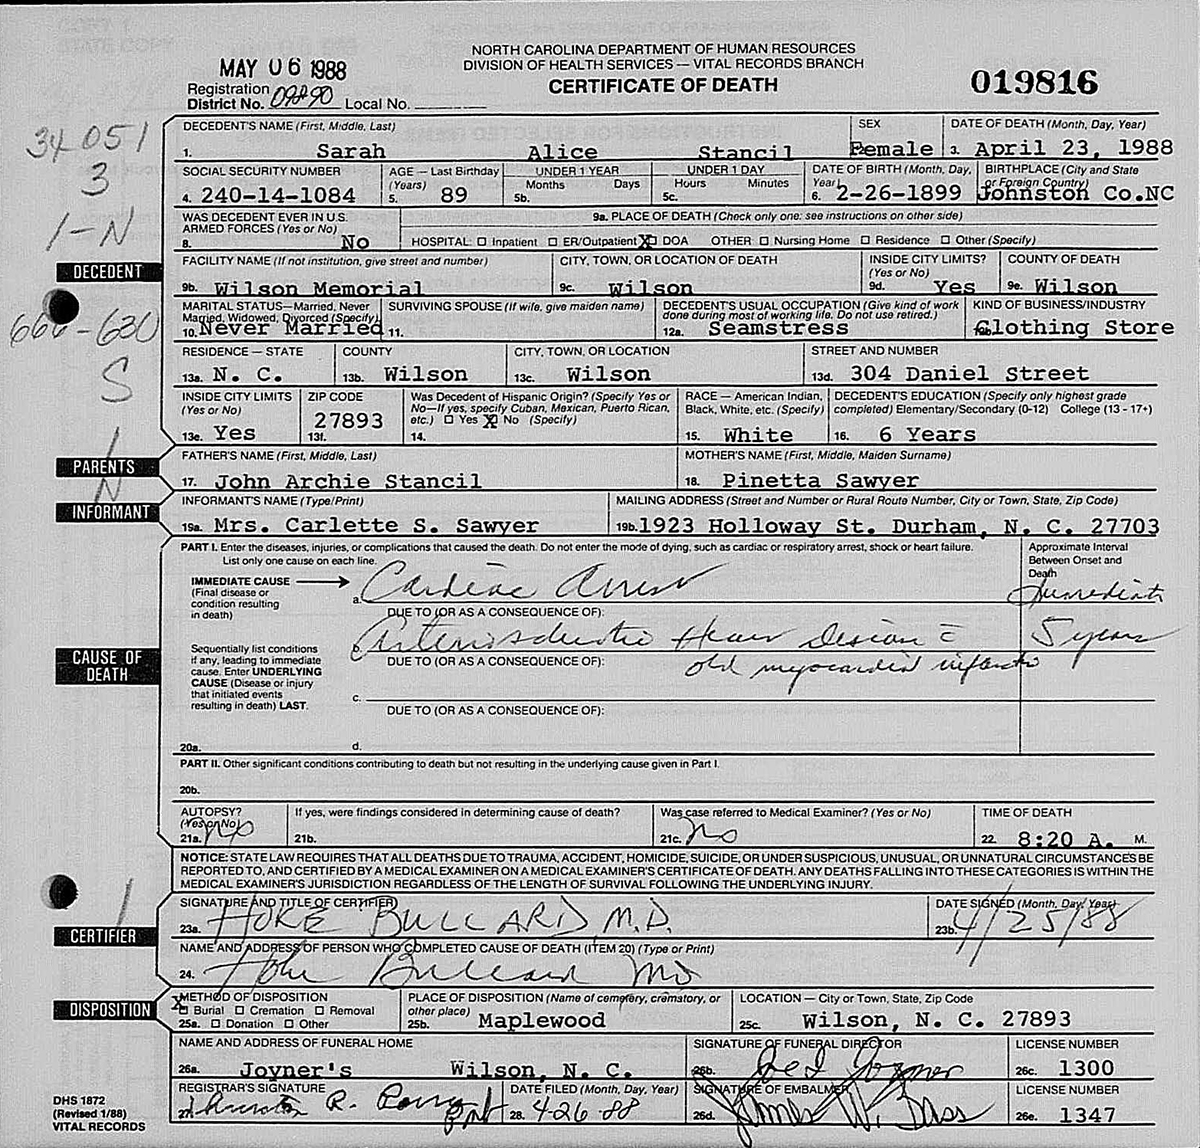 NORTH CAROLINA DEPARTMENT OF HUMAN RESOURCES
DIVISION OF HEALTH SERVICES — VITAL RECORDS BRANCH
CERTIFICATE OF DEATH
MAY 06 1988
019816
Registration
District No. Local No.
34051
3
1-N
DECEDENT'S NAME (First, Middle, Last) SEX DATE OF DEATH (Month, Day, Year)
1. Sarah Alice Stancil Female 3. April 23, 1988
SOCIAL SECURITY NUMBER AGE — Last Birthday (Years) UNDER 1 YEAR UNDER 1 DAY DATE OF BIRTH (Month, Day, Year) BIRTHPLACE (City and State or Foreign Country)
Months Days Hours Minutes
4. 240-14-1084 5. 89 5b. 5c. 6. 2-26-1899 Johnston Co.NC
WAS DECEDENT EVER IN U.S. ARMED FORCES (Yes or No) 9a. PLACE OF DEATH (Check only one: see instructions on other side)
8. No HOSPITAL: ☐ Inpatient ☐ ER/Outpatient ☒ DOA OTHER: ☐ Nursing Home ☐ Residence ☐ Other (Specify)
DECEDENT
FACILITY NAME (If not institution, give street and number) CITY, TOWN, OR LOCATION OF DEATH INSIDE CITY LIMITS? (Yes or No) COUNTY OF DEATH
9b. Wilson Memorial 9c. Wilson 9d. Yes 9e. Wilson
MARITAL STATUS—Married, Never Married, Widowed, Divorced (Specify) SURVIVING SPOUSE (If wife, give maiden name) DECEDENT'S USUAL OCCUPATION (Give kind of work done during most of working life. Do not use retired.) KIND OF BUSINESS/INDUSTRY
10. Never Married 11. 12a. Seamstress Clothing Store
S
RESIDENCE — STATE COUNTY CITY, TOWN, OR LOCATION STREET AND NUMBER
13a. N. C. 13b. Wilson 13c. Wilson 13d. 304 Daniel Street
INSIDE CITY LIMITS (Yes or No) ZIP CODE Was Decedent of Hispanic Origin? (Specify Yes or No—If yes, specify Cuban, Mexican, Puerto Rican, etc.) ☐ Yes ☒ No (Specify) RACE — American Indian, Black, White, etc. (Specify) DECEDENT'S EDUCATION (Specify only highest grade completed) Elementary/Secondary (0-12) College (13 - 17+)
13e. Yes 13f. 27893 14. 15. White 16. 6 Years
PARENTS
FATHER'S NAME (First, Middle, Last) MOTHER'S NAME (First, Middle, Maiden Surname)
17. John Archie Stancil 18. Pinetta Sawyer
INFORMANT
INFORMANT'S NAME (Type/Print) MAILING ADDRESS (Street and Number or Rural Route Number, City or Town, State, Zip Code)
19a. Mrs. Carlette S. Sawyer 19b. 1923 Holloway St. Durham, N. C. 27703
PART I. Enter the diseases, injuries, or complications that caused the death. Do not enter the mode of dying, such as cardiac or respiratory arrest, shock or heart failure.
List only one cause on each line.
Approximate Interval Between Onset and Death
IMMEDIATE CAUSE
(Final disease or condition resulting in death)
a. Cardiac Arrest Immediate
DUE TO (OR AS A CONSEQUENCE OF):
Arteriosclerotic Heart Disease c̄ 5 years
DUE TO (OR AS A CONSEQUENCE OF): old myocardial infarcts
CAUSE OF DEATH
Sequentially list conditions if any, leading to immediate cause. Enter UNDERLYING CAUSE (Disease or injury that initiated events resulting in death) LAST.
c.
DUE TO (OR AS A CONSEQUENCE OF):
20a. d.
PART II. Other significant conditions contributing to death but not resulting in the underlying cause given in Part I.
20b.
AUTOPSY? (Yes or No) If yes, were findings considered in determining cause of death? Was case referred to Medical Examiner? (Yes or No) TIME OF DEATH
21a. No 21b. 21c. No 22. 8:20 A. M.
NOTICE: STATE LAW REQUIRES THAT ALL DEATHS DUE TO TRAUMA, ACCIDENT, HOMICIDE, SUICIDE, OR UNDER SUSPICIOUS, UNUSUAL, OR UNNATURAL CIRCUMSTANCES BE
REPORTED TO, AND CERTIFIED BY A MEDICAL EXAMINER ON A MEDICAL EXAMINER'S CERTIFICATE OF DEATH. ANY DEATHS FALLING INTO THESE CATEGORIES IS WITHIN THE
MEDICAL EXAMINER'S JURISDICTION REGARDLESS OF THE LENGTH OF SURVIVAL FOLLOWING THE UNDERLYING INJURY.
CERTIFIER
SIGNATURE AND TITLE OF CERTIFIER DATE SIGNED (Month, Day, Year)
23a. HOKE BULLARD, M.D. 23b. 4/25/88
NAME AND ADDRESS OF PERSON WHO COMPLETED CAUSE OF DEATH (ITEM 20) (Type or Print)
24. Hoke Bullard MD
DISPOSITION
METHOD OF DISPOSITION PLACE OF DISPOSITION (Name of cemetery, crematory, or other place) LOCATION — City or Town, State, Zip Code
☒ Burial ☐ Cremation ☐ Removal
25a. ☐ Donation ☐ Other 25b. Maplewood 25c. Wilson, N. C. 27893
NAME AND ADDRESS OF FUNERAL HOME SIGNATURE OF FUNERAL DIRECTOR LICENSE NUMBER
26a. Joyner's Wilson, N. C. 26b. Joel Joyner 26c. 1300
REGISTRAR'S SIGNATURE DATE FILED (Month, Day, Year) SIGNATURE OF EMBALMER LICENSE NUMBER
27. R. 28. 4-26-88 26d. James W. Bass 26e. 1347
DHS 1872
(Revised 1/88)
VITAL RECORDS